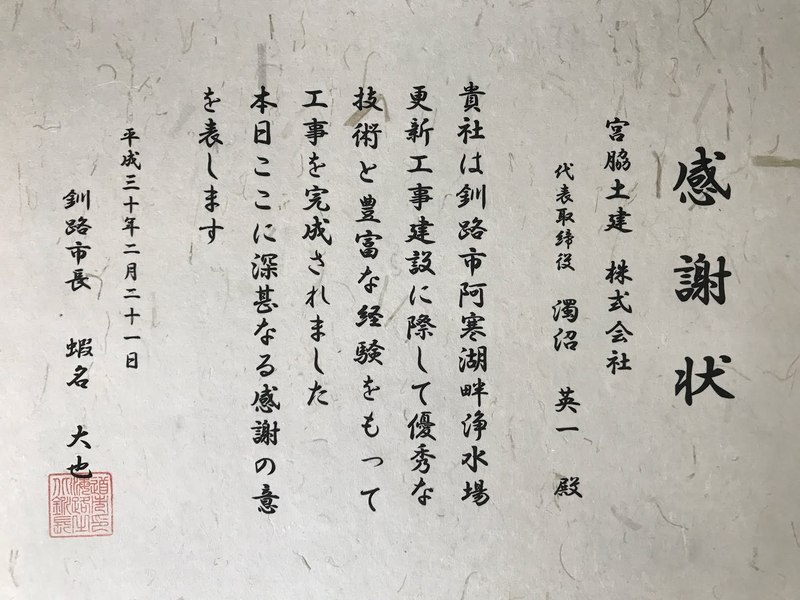 感謝状
宮脇土建 株式会社
代表取締役 濁沼 英一 殿
貴社は釧路市阿寒湖畔浄水場
更新工事建設に際して優秀な
技術と豊富な経験をもって
工事を完成されました
本日ここに深甚なる感謝の意
を表します
平成三十年二月二十一日
釧路市長 蝦名 大也